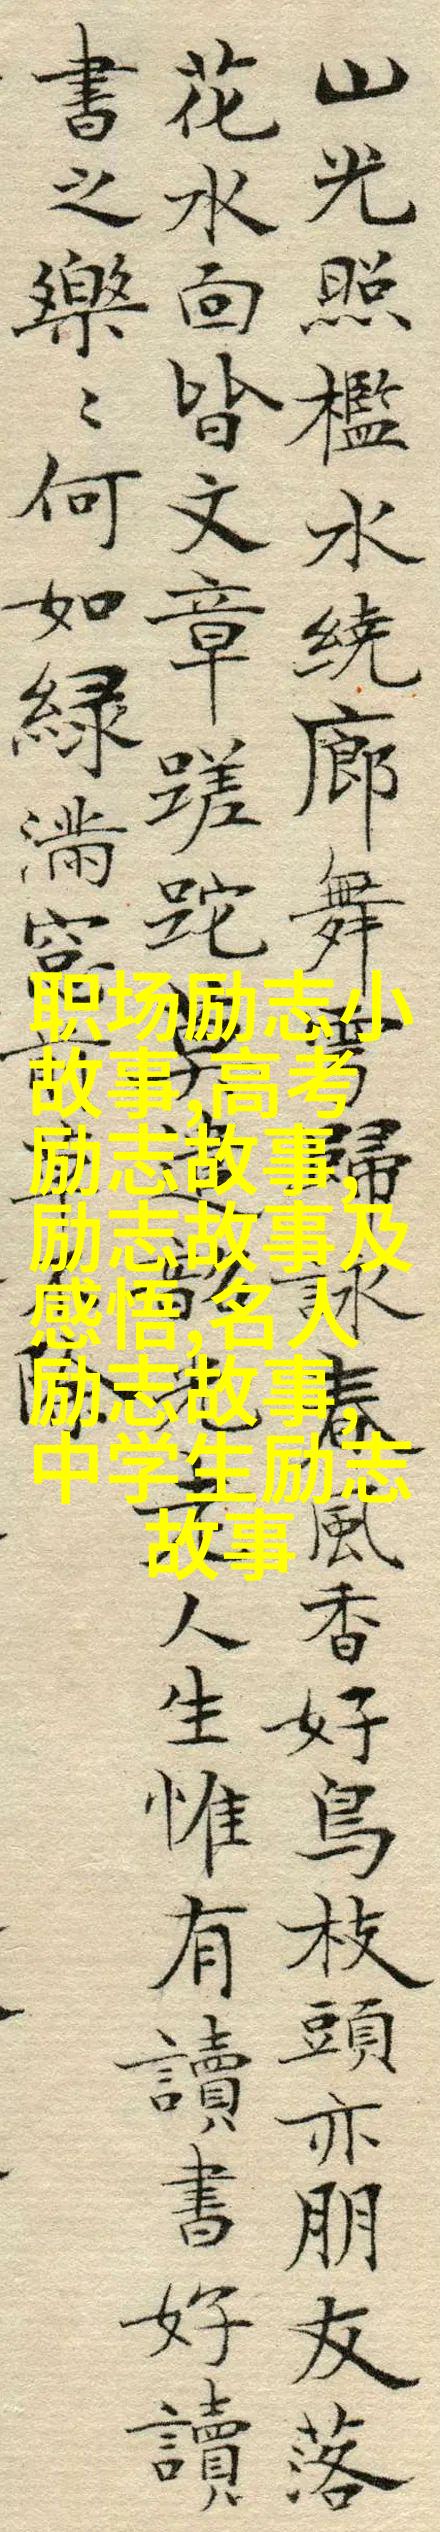 山光照檻水繞廊舞雩歸詠春風香好鳥枝頭亦朋友落
花水面皆文章蹉跎莫遣韶光老人生惟有讀書好讀
書之樂〻何如緑滿窗前草不除
职场励志小
故事,高考
励志故事,
励志故事及
感悟,名人
励志故事,
中学生励志
故事